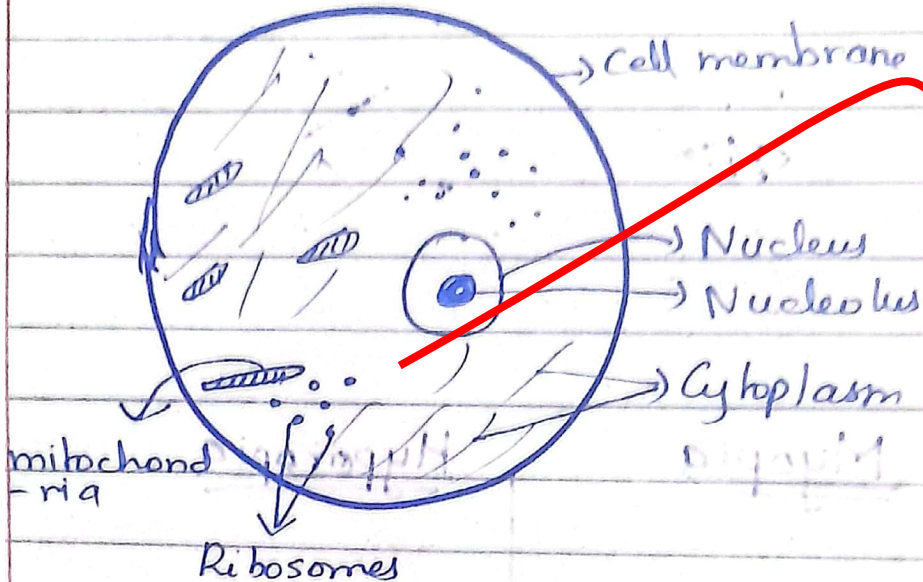 Cell membrane
Nucleus
Nucleolus
Cytoplasm
mitochond
- ria
Ribosomes